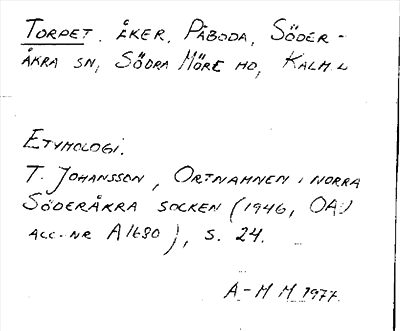 TORPET. ÅKER. PÅBODA, SÖDER-
ÅKRA SN, SÖDRA MÖRE HD, KALM. L
ETYMOLOGI.
T. JOHANSSON, ORTNAMNEN I NORRA
SÖDERÅKRA SOCKEN (1946, OAU
ACC. NR A1680), S. 24.
A-M M 1977